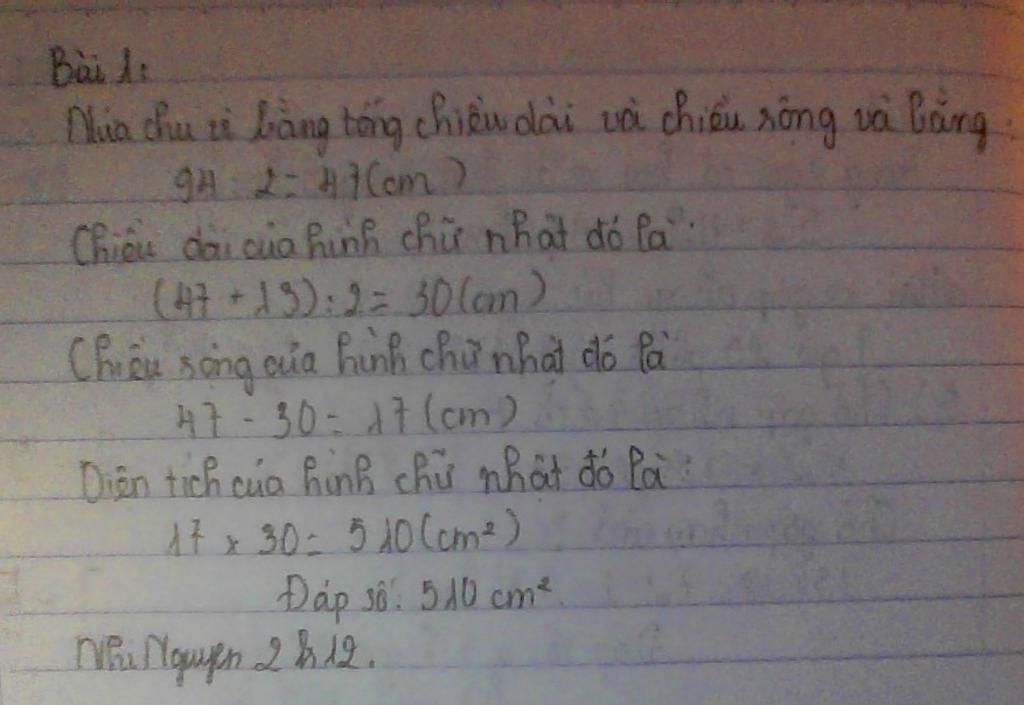 Bài 1:
Nửa chu vi bằng tổng chiều dài và chiều rộng và bằng:
94 : 2 = 47(cm)
Chiều dài của hình chữ nhật đó là:
(47 + 13) : 2 = 30(cm)
Chiều rộng của hình chữ nhật đó là
47 - 30 = 17 (cm)
Diện tích của hình chữ nhật đó là:
17 x 30 = 510(cm²)
Đáp số: 510 cm².
Như Nguyen 2k12.